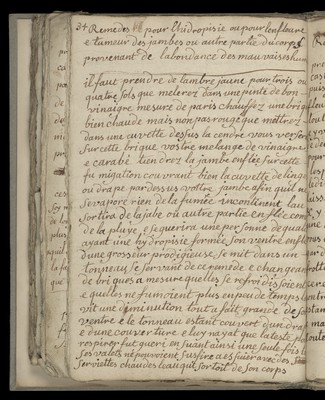 34 Remedes pour l'hidropisie ou pour l'enfleure
e tumeur des jambes ou autre partie du corps
provenant de labondance des mauvaises hum
il faut prendre de lambre jaune pour trois ou
quatre sols que melerez dans une pinte de bon
vinaigre mesure de paris chauffez une briq
bien chaude mais non pas rouge que mettrez
dans une cuvette dessus la cendre vous verser
sur cette brique vostre melange de vinaigre
e carabé tiendrez la jambe enflée sur cette
fumigation couvrant bien la cuvette de linge
ou drape par dessus vostre jambe afin quil ne
sevapore rien de la fumée incontinent lau
sortira de la jabe ou autre partie enflée comme
de la pluye, e se guerira une personne de qual
ayant une hydropisie formée son ventre enfl
dune grosseur prodigieuse se mit dans un
tonneau se servant de ce remede e changeant
de briques a mesure quelles se refroidissoient
e quelles ne fumoient plus en peu de temps l
vit une diminution tout a fait grande de so
ventre e le tonneau estant couvert dun drap
e dune couverture e luy nayat que la teste p
respirer fut gueri en suant ainsi une seule fois
ses valets ne pouvoient susfire a essuier avec des
serviettes chaudes leau qui sortoit de son corps